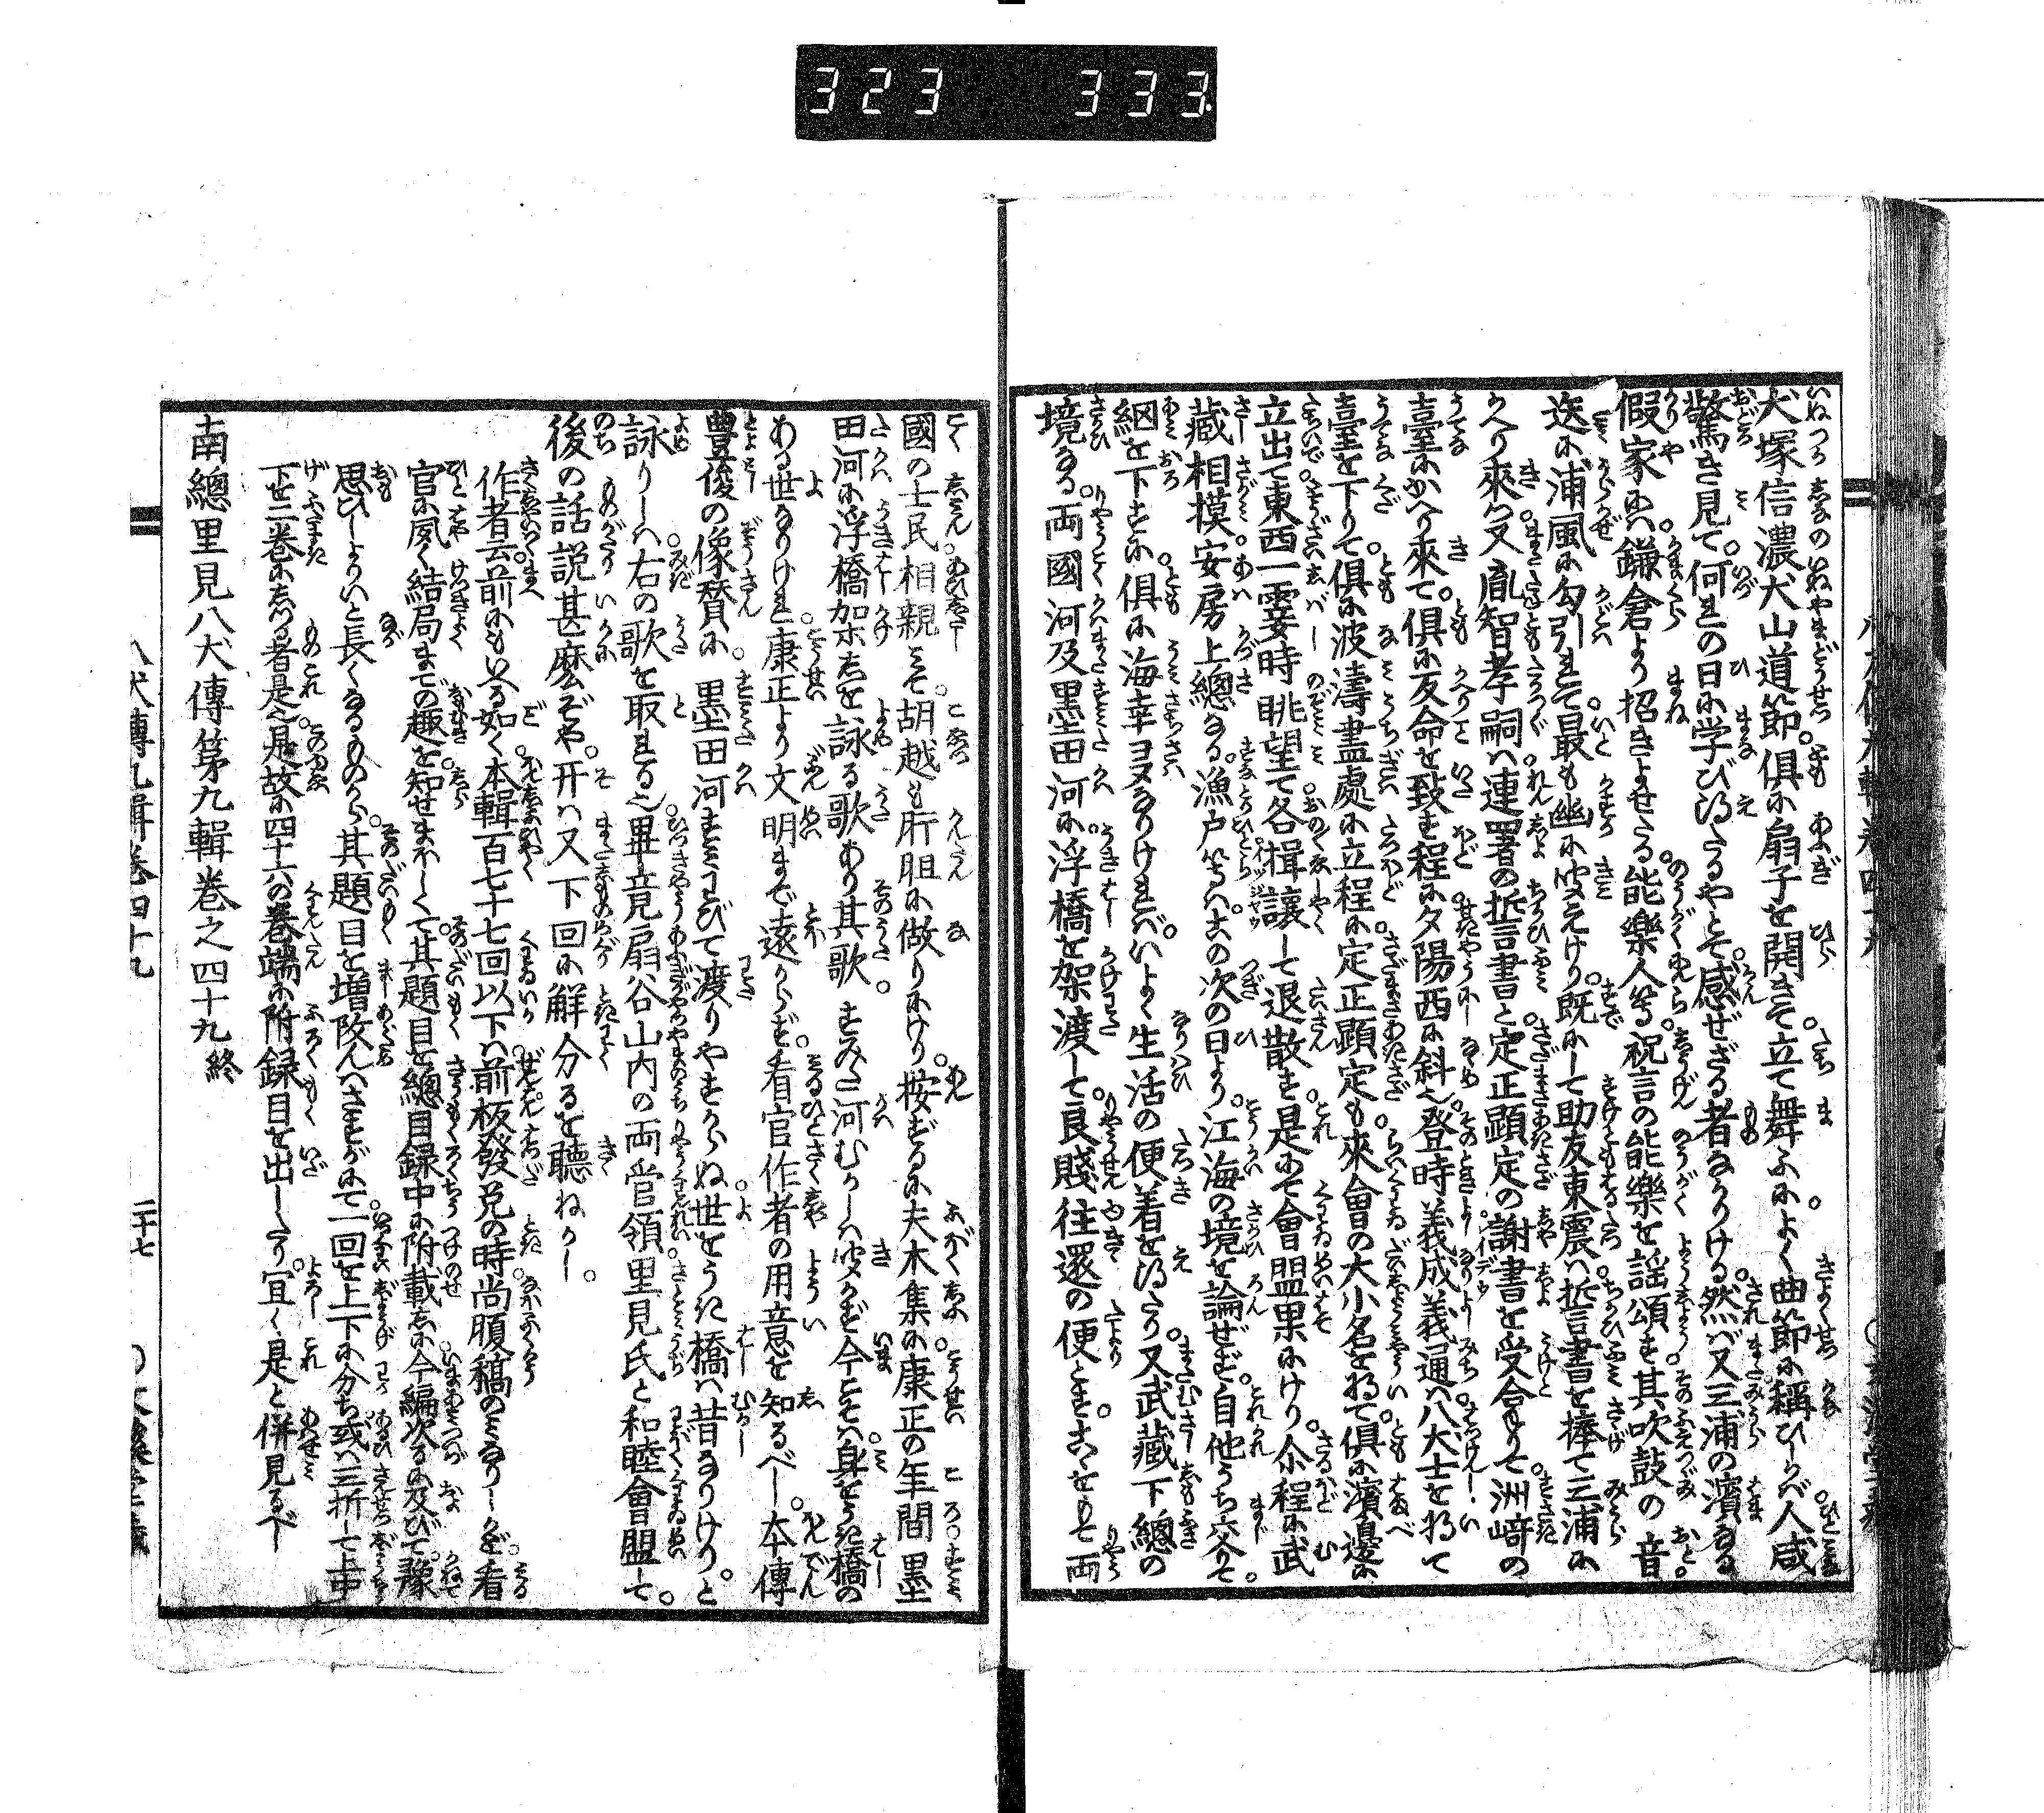 323 333
犬塚信濃犬山道節。倶に扇子を開きて立て舞ふによく。曲節に稱ひしかば。人咸
驚き見て。何れの日に学び得たるやとぞ。感ぜざる者なかりける。然ば又三浦の濱なる
假家には。鎌倉より招きよせたる。能樂人等。祝言の能樂を謡頌す。其吹鼓の音。
迭に浦風に勾引れて。最も幽に聞えけり。既にして助友東震は。誓書を捧て三浦に
かへり來つ。又胤智孝嗣は。連署の誓書と。定正顕定の謝書を受合もて。洲﨑の
臺にかへり來て。倶に反命を致す程に。夕陽西に斜也。登時義成義通は。八犬士を將て
臺を下りて。倶に波濤盡處に立程に。定正顕定も。來會の大小名を將て。倶に濱邊に
立出て。東西一霎時眺望て。各揖讓して退散す。是にて會盟果にけり。尒程に武
藏相摸。安房上總なる。漁戸等は。其の次の日より。江海の境を論ぜず。自他うち交りて。
網を下すに。倶に海幸ヨヌなりければ。いよく生活の便着を得たり。又武藏下總の
境なる。両國河及墨田河に。浮橋を架渡して。良賤往還の便とす。こゝをもて両
國の士民。相親みて。胡越も肝胆に做りにけり。按ずるに。夫木集に。康正の年間。墨
田河に浮橋架たるを。詠る歌あり其歌。すみた河むかしは聞かず今こそは。身をうき橋の
ある世なりけれ。康正より文明まで遠からず。看官作者の用意を知るべし。本傳
豊後の像賛に。墨田河すみわびて。渡りやすからぬ世をうき橋は昔なりけり。と
詠りしは。右の歌を取れる也。畢竟扇谷山内の両管領。里見氏と和睦會盟して。
後の話説甚麽ぞや。开は又下回に解分るを聴ねかし。
作者云前にもいへる如く。本輯百七十七回以下は。前板發兌の時。尚腹稿のみなりしかば。看
官に夙く結局までの趣を。知せまほしくて。其題目を。總目録中に附載たるに。今編次るに及びて。豫
思ひしよりいと長くなるものから。其題目を増改んハさすがにて。一回を上下に分ち。或は三折て上中
下を二巻にしつる者是也。是故に四十六の巻端に。附録目を出したり。宜く是と併見るべし
南總里見八犬傳第九輯巻之四十九 終
八犬傳九輯巻四十九 二十七